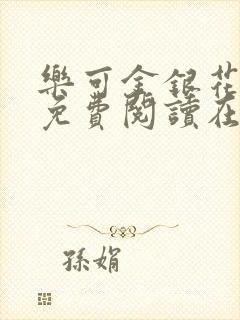 樂可金銀花
免費閱讀在
孫娟